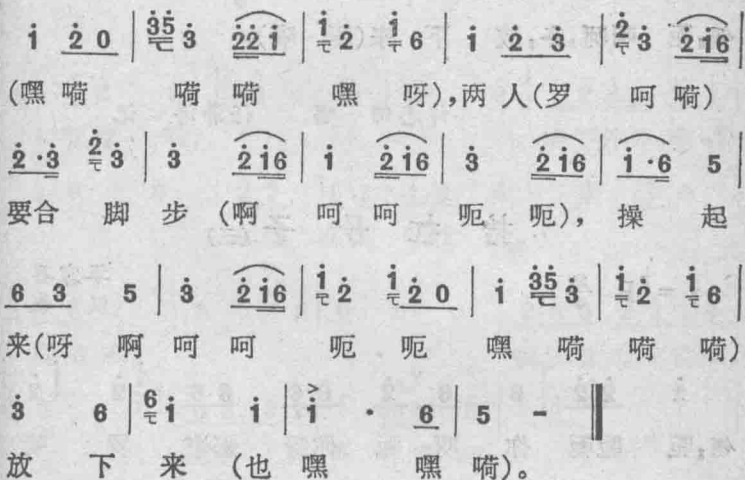 i 2 0 | 35 3 22 i | i 2 i 6 | i 2 3 | 2 3 2 i6 |
(嘿 嗬 嗬 嗬 嘿 呀),两 人(罗 呵 嗬)
2 · 3 2 3 | 3 2 i6 | i 2 i6 | 3 2 i6 | i · 6 5 |
要合 脚 步 (啊 呵 呵 呃 呃), 操 起
6 3 5 | 3 2 i6 | i 2 i 2 0 | i 35 3 | i 2 i 6 |
来(呀 啊 呵 呵 呃 呃 嘿 嗬 嗬 嗬)
3 6 | 6 i i | i · 6 | 5 - ‖
放 下 来 (也 嘿 嘿 嗬)。